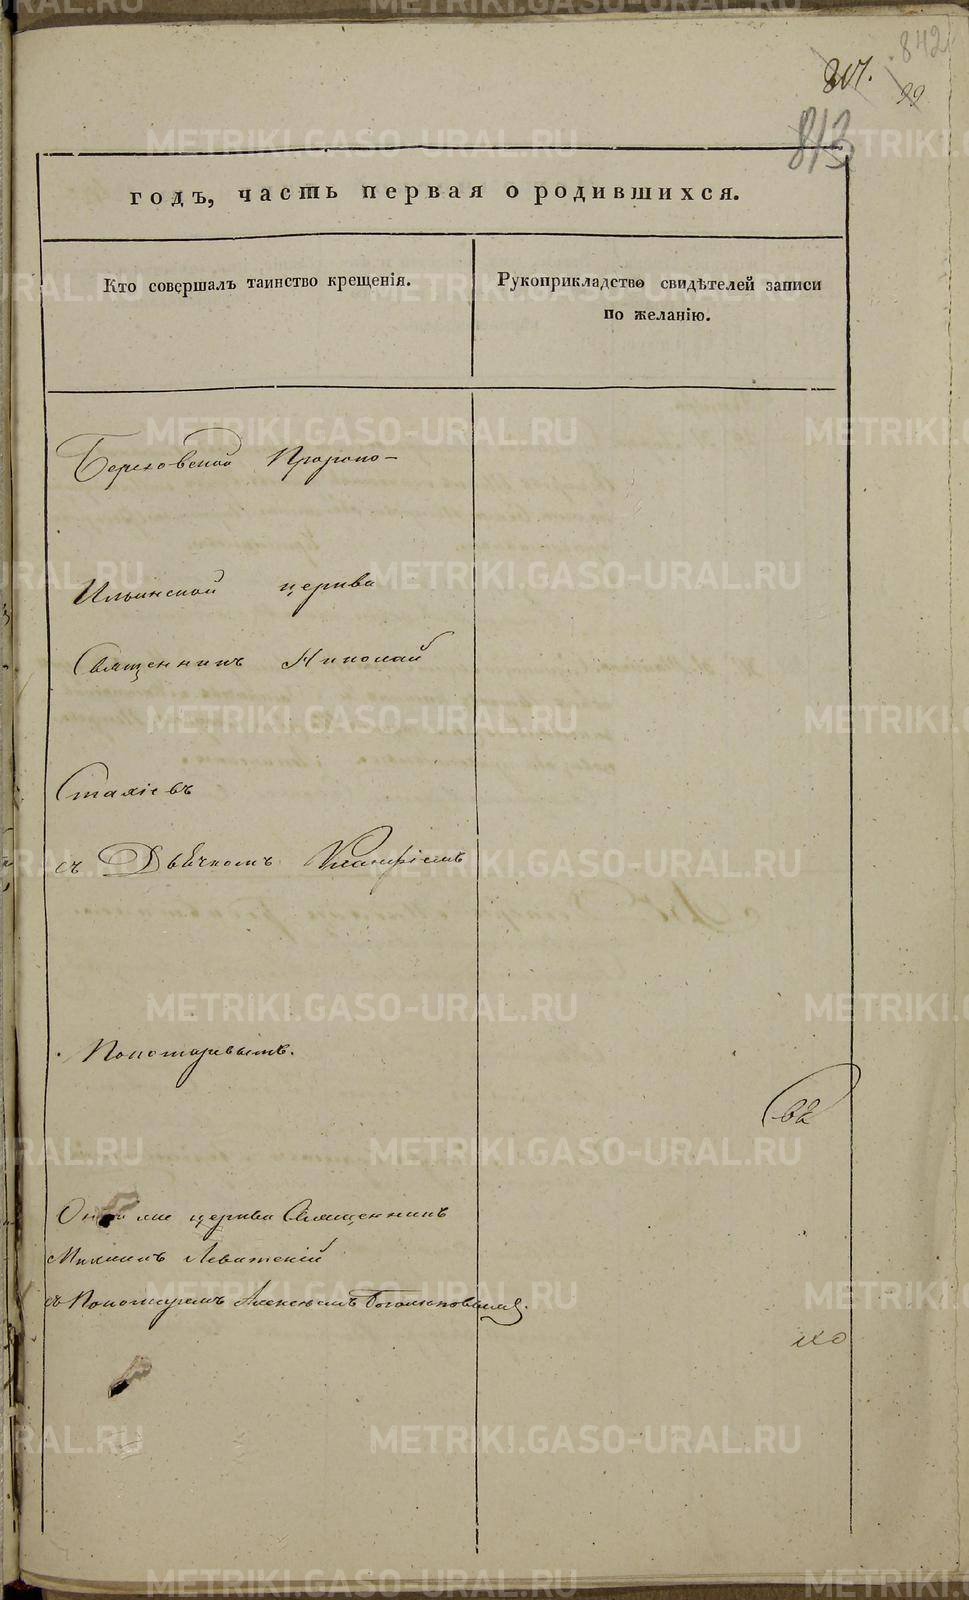 842
99
813
годъ, часть первая о родившихся.
Кто совершалъ таинство крещенія.
Рукоприкладство свидѣтелей записи
по желанію.
Пророко-
Ильинской церкви
Священникъ Николай
Стахіевъ
съ Дьячкомъ
Пономаревымъ.
церкви Священникъ
съ Пономаремъ Алексѣемъ Боголюбовымъ.
METRIKI.GASO-URAL.RU